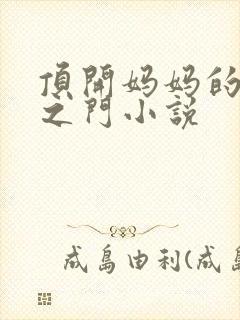 頂開妈妈的
之門小説
成島由利(成島